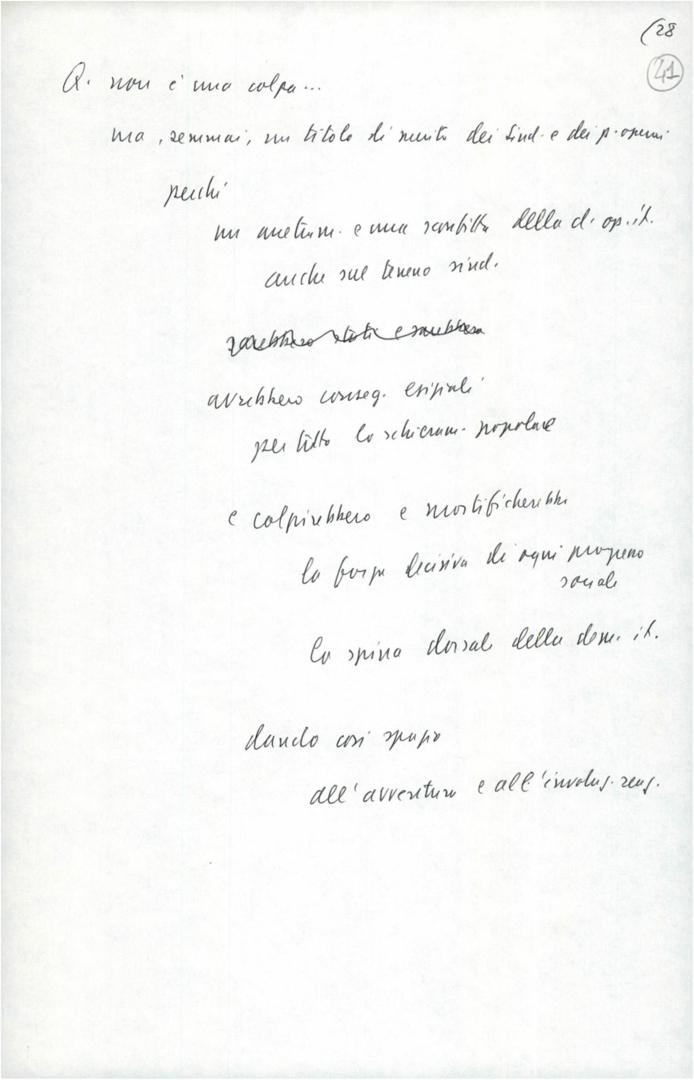 (28
41
Q. non è una colpa...
ma, semmai, un titolo di merito dei Sind. e dei p. operai
perché
un arretram. e una sconfitta della cl. op. it.
anche sul terreno sind.
sarebbero state e sarebbero
avrebbero conseg. esiziali
per tutto lo schieram. popolare
e colpirebbero e mortificherebbe
la forza decisiva di ogni progresso
sociale
la spina dorsale della dem. it.
dando così spazio
all'avventura e all'involuz. reaz.